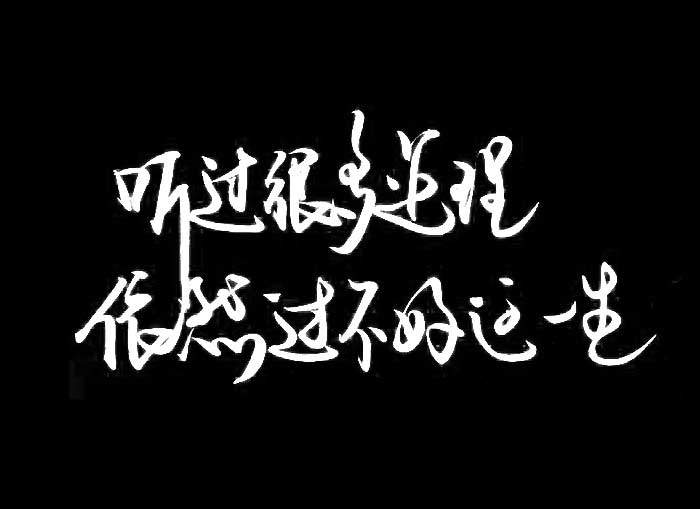 听过很多道理
依然过不好这一生